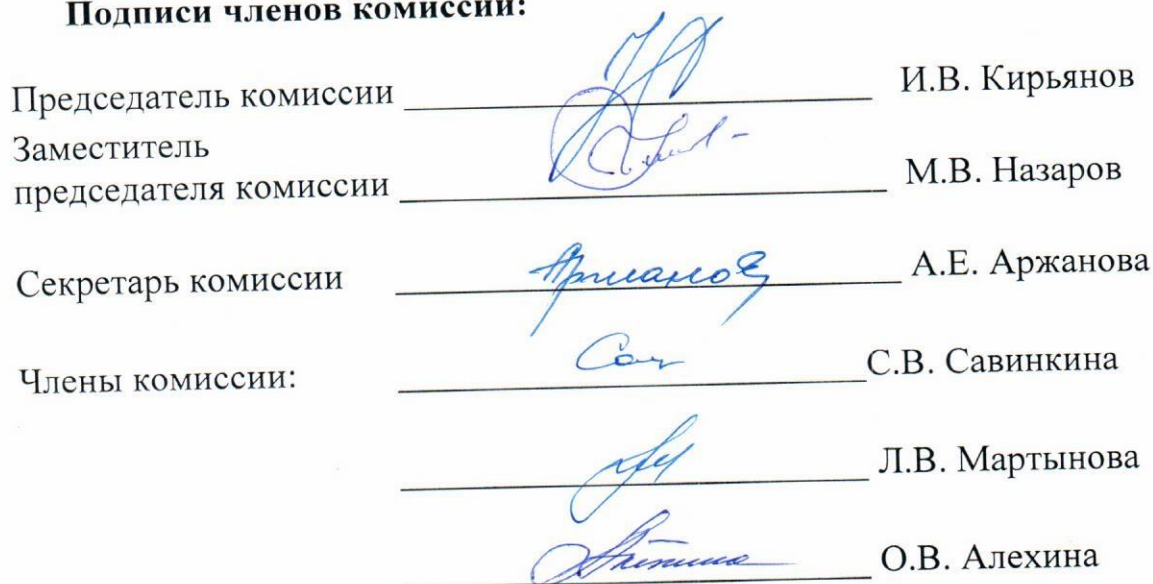 Подписи членов комиссии:
Председатель комиссии И.В. Кирьянов
Заместитель
председателя комиссии М.В. Назаров
Секретарь комиссии А.Е. Аржанова
Члены комиссии: С.В. Савинкина
Л.В. Мартынова
О.В. Алехина